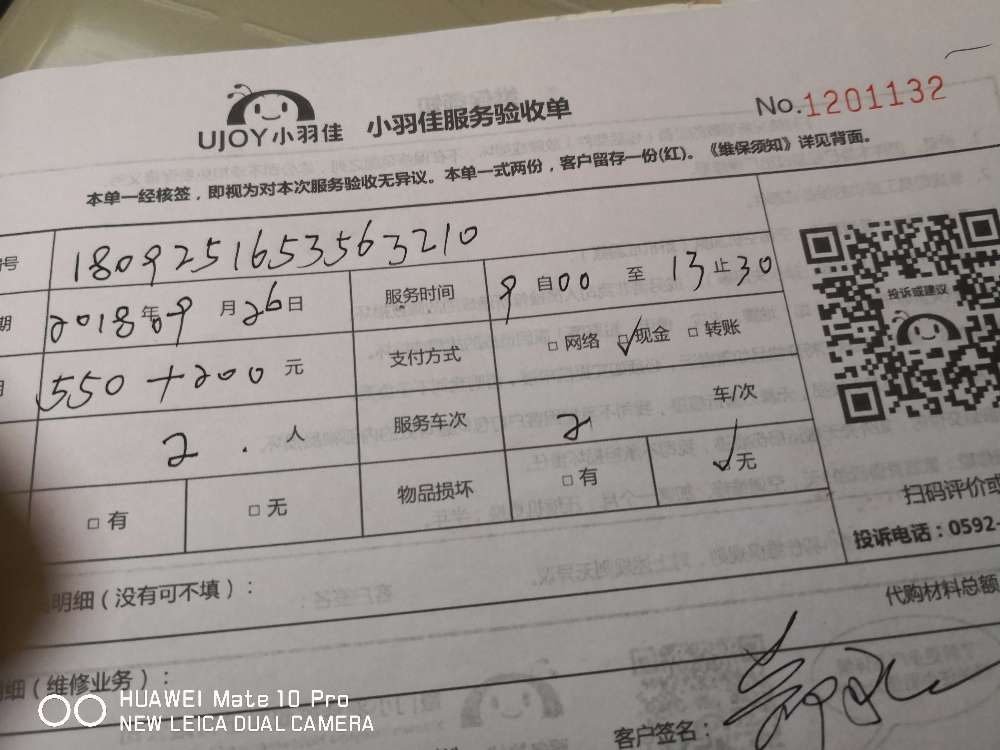 UJOY小羽佳 小羽佳服务验收单 No.1201132
本单一经核签，即视为对本次服务验收无异议。本单一式两份，客户留存一份(红)。《维保须知》详见背面。
号 1809251653563210
期 2018年9月26日 服务时间 9自00至13止30
550+200元 支付方式 □网络 ☑现金 □转账
2.人 服务车次 2 车/次
□有 □无 物品损坏 □有 ✓无
投诉或建议
扫码评价或
投诉电话：0592-
明细（没有可不填）：
代购材料总额
明细（维修业务）：
客户签名：
HUAWEI Mate 10 Pro
NEW LEICA DUAL CAMERA